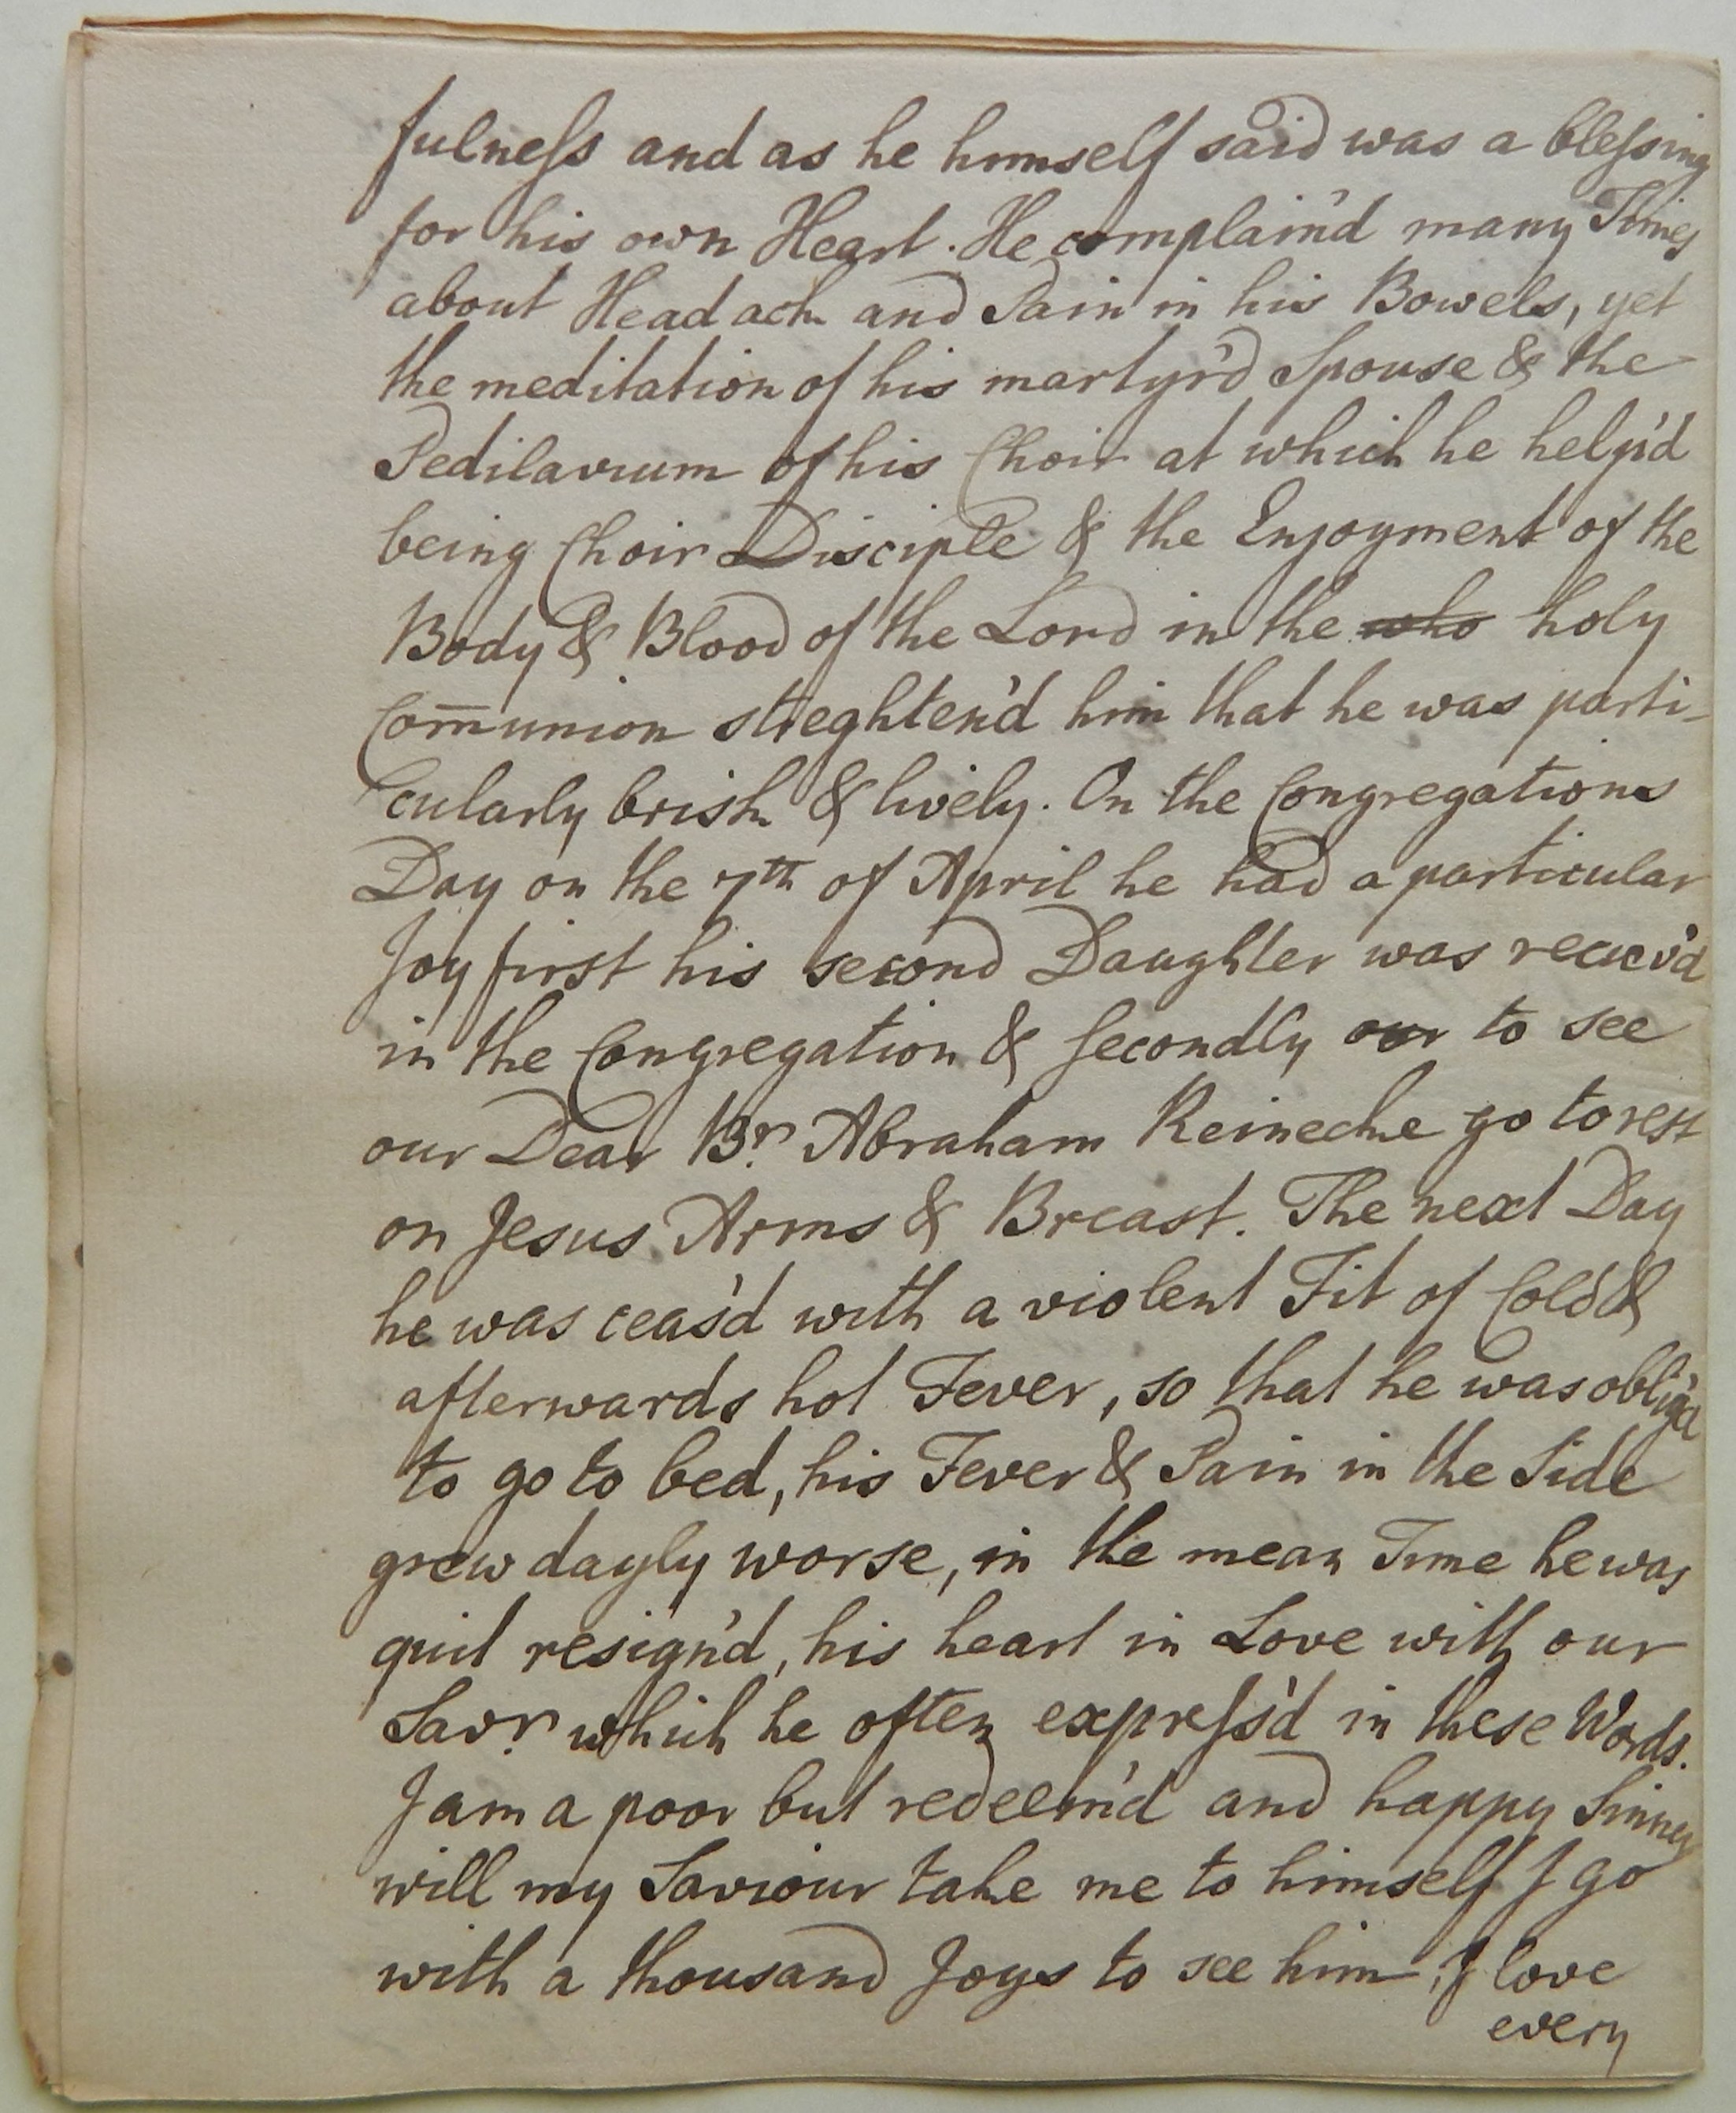 fulneſs and as he himself said was a bleſsing
for his own Heart. He complain'd many Times
about Headach and Pain in his Bowels, yet
the meditation of his martyr'd Spouse & the
Pedilavium of his Choir at which he help'd
being Choir Disciple & the Enjoyment of the
Body & Blood of the Lord in the who holy
Com̄union streghten'd him that he was parti-
cularly brisk & lively. On the Congregations
Day on the 7th of April he had a particular
Joy first his second Daughter was reciev'd
in the Congregation & secondly our to see
our Dear Br. Abraham Reinecke go to rest
on Jesus Arms & Breast. The next Day
he was ceas'd with a violent Fit of Cold &
afterwards hot Fever, so that he was oblig'd
to go to bed, his Fever & Pain in the Side
grew dayly worse, in the mean Time he was
quit resign'd, his heart in Love with our
Savr. which he often expreſs'd in these Words.
I am a poor but redeem'd and happy Sinner
will my Saviour take me to himself I go
with a thousand Joys to see him, I love
every